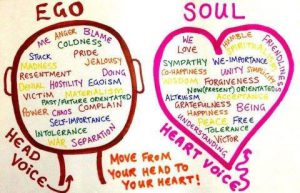 EGO
ME ANGER BLAME
COLDNESS
STUCK PRIDE
MADNESS JEALOUSY
RESENTMENT DOING
DENIAL HOSTILITY EGOISM
VICTIM MATERIALISM
PAST/FUTURE ORIENTATED
POWER CHAOS COMPLAIN
SELF-IMPORTANCE
INTOLERANCE
WAR SEPARATION
HEAD VOICE
SOUL
WE HUMBLE FRIENDLINESS
LOVE SPIRITUALISM
SYMPATHY WE-IMPORTANCE
CO-HAPPINESS UNITY SIMPLICITY
WISDOM FORGIVENESS
NOW (PRESENT) ORIENTATED
ALTRUISM ACCEPTANCE
GRATEFULNESS
HAPPINESS BEING
PEACE FREE
TOLERANCE
UNDERSTANDING VICTOR
HEART VOICE
MOVE FROM
YOUR HEAD TO
YOUR HEART!